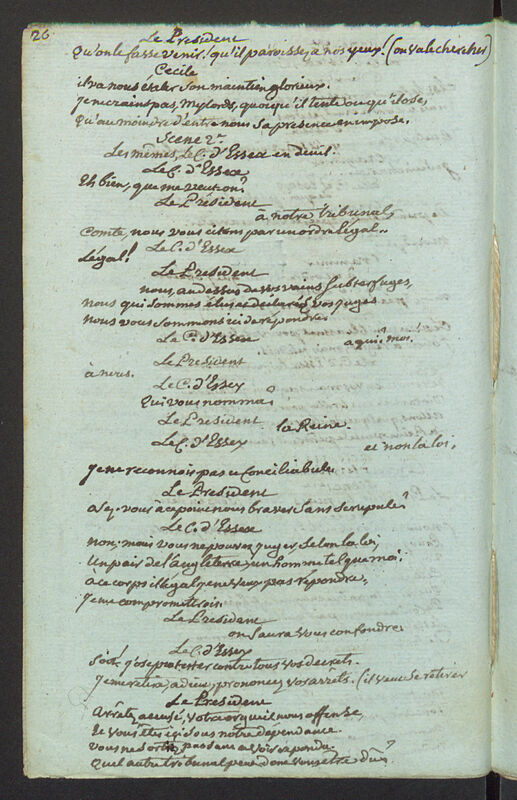 26
Le President
Qu'on le fasse venir! qu'il paroisse à nos yeux! (on va le chercher)
Cecile
il va nous étaler son maintien glorieux.
Je ne crains pas, Mylords, quoiqu'il tente ou qu'il ose,
Qu'au moindre d'entre nous sa presence en impose.
Scene 2e.
Les mêmes, Le C. d'Essex en deuil.
Le C. d'Essex
Eh bien, que me veut on?
Le Président
à notre tribunal,
Comte, nous vous citons par un ordre légal..
Le C. d'Essex
Légal!
Le President
nous, au dessus de vos vains subterfuges,
nous qui sommes élus et déclarés vos juges
nous vous sommons ici de répondre.
Le C. d'Essex
a qui? moi.
Le President
à nous.
Le C. d'Essex
Qui vous nomma?
Le President
la Reine.
Le C. d'Essex
et non la loi.
Je ne reconnois pas ce Conciliabule
Le President
osez-vous à ce point nous braver sans scrupule?
Le C. d'Essex
non; mais vous ne pouvez juger, selon la loi,
Un pair de l'angleterre, un homme tel que moi.
a ce corps illégal je ne veux pas répondre.
Je me compromettrois.
Le President
on saura vous confondre.
Le C. d'Essex
Soit. j'ose protester contre tous vos decrets.
Je me retire, adieu, prononcez vos arrets. (il veut se retirer
Le President
Arrêtez, accusé, votre orgueil nous offense,
Et vous êtes ici sous notre dependance.
vous ne sortirez pas sans avoir repondu.
Quel autre tribunal peut donc vous être dû?